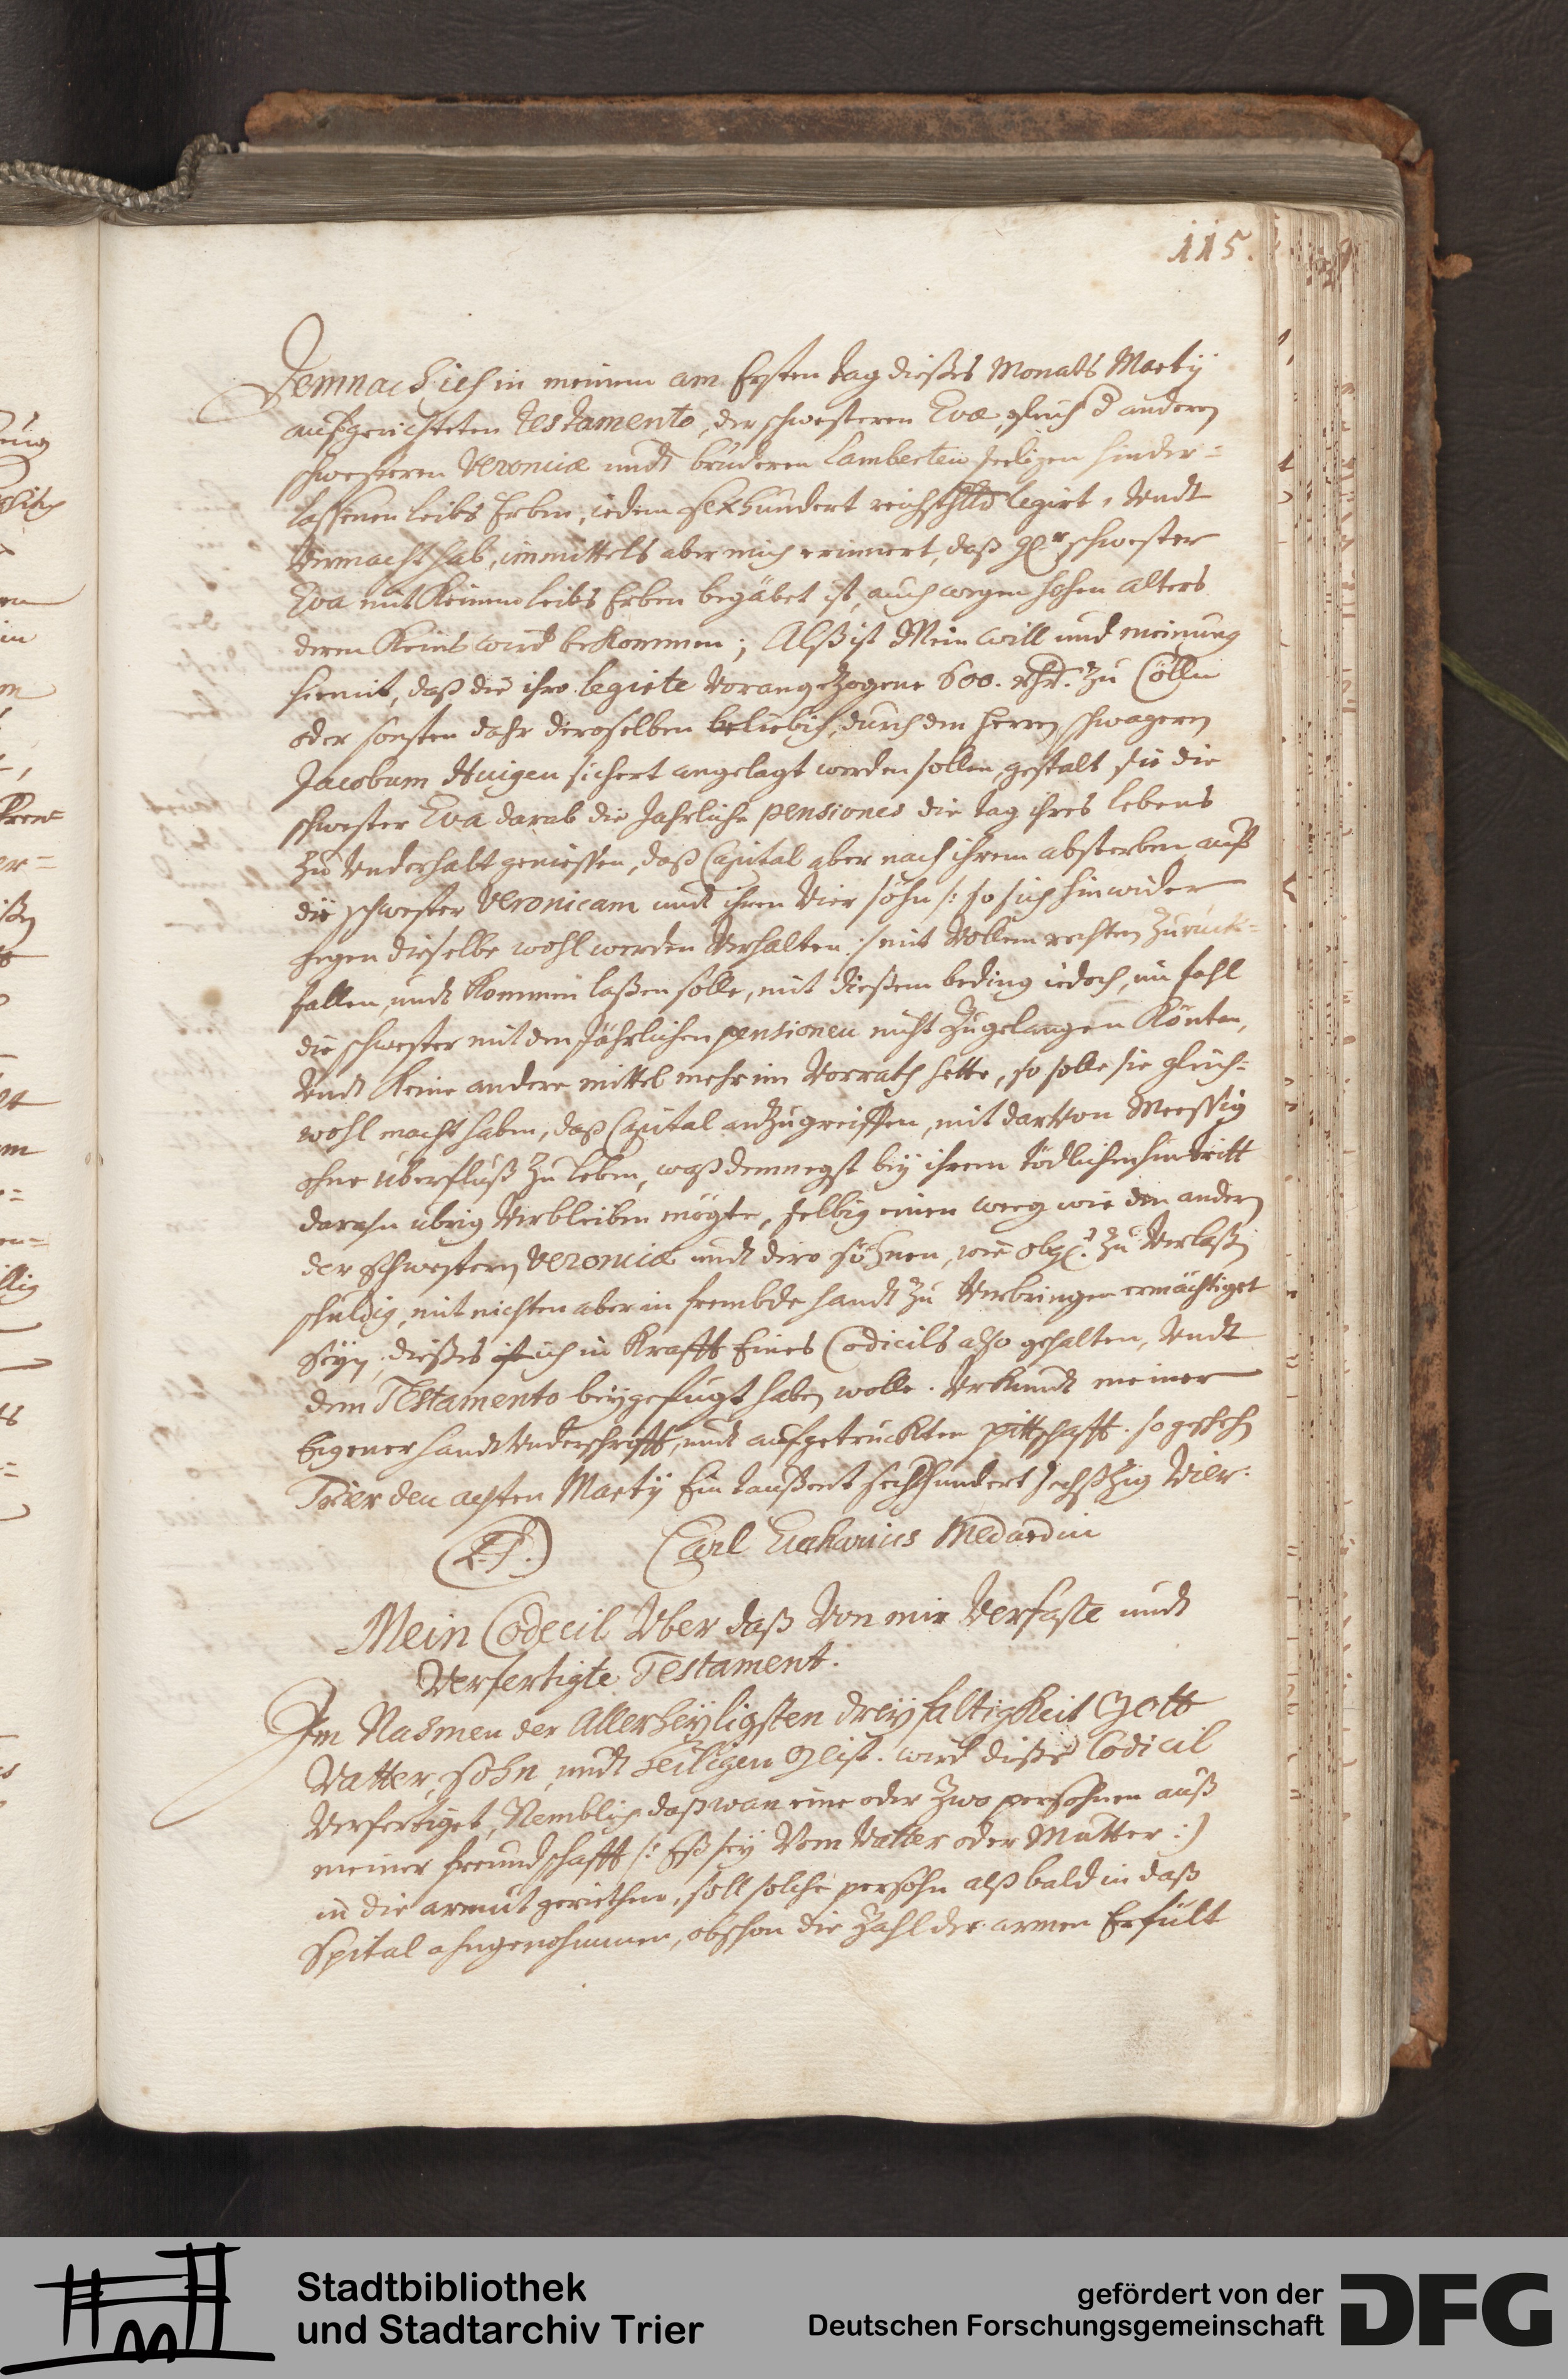 115.
Demnach ich in meinem am Ersten tag dießes Monats Martÿ
aufgerichteten Testamento, der schwesteren Evæ, gleich d anderen
schwesteren Veronicæ undt bruderen Lamberten seeligen hinder=
lassenen leibs Erben, iedem sexhundert reichsthlr legirt, Undt
Vermacht hab, immittels aber mich erinnert, daß schwester
Eva mit Keinen leibs Erben begäbet ist, auch wegen hohen alters
deren Keins wird bekommen; Alß ist Mein will und meinung
hiemit, daß die ihro legirte Vorangezogene 600. rthr. Zu Cölln
oder sonsten dahr deroselben beliebich, durch den herren schwageren
Jacobum Huigen sichert angelagt werden sollen, gestalt sie die
schwester Eva darab die Jahrliche pensiones die tag ihres lebens
Zu Underhalt geniessen, daß Capital aber nach ihrem absterben auff
die schwester Veronicam undt ihren Vier söhn /: so sich hinwider
gegen dieselbe wohl werden Verhalten :/ mit Vollem rechten Zuruck=
fallen, undt Kommen laßen solle, mit dießem beding iedoch, im fahl
die schwester mit den Jährlichen pensionen nicht Zugelangen Könten,
Undt Keine andere mittel mehr im Vorrath hette, so solle sie gleich=
wohl macht haben, daß Capital anZugreiffen, mit dartvon Meessig
ohne uberfluß Zu leben, waß demnegst beÿ ihrem tödlichen hintritt
darahn ubrig Verbleiben mögte, selbig einen weeg wie den anderen
der schwesteren Veronicæ undt dero söhnen, wie obg. Zu Verlaßen
schuldig, mit nichten aber in frembde handt Zu Verbringen ermächtiget
seÿn, dießes ich in Krafft Eines Codicils also gehalten, Undt
dem Testamento beÿgefugt haben wolle. Urkundt meiner
Eigener handt Underschrifft, undt aufgetruckten pittschafft. so geschehen
Trier den achten Martÿ Ein taußent sechshundert sechßzig Vier.
(L.S.) Carl Eucharius Medardin
Mein Codecil Uber daß Von mir Verfaste undt
Verfertigte Testament.
Im Nahmen der Allerheÿligsten dreÿfaltigkeit Gott
Vatter, sohn, undt heiligen Geist. wird dießes Codicil
Verfertiget, Nemblich daß wan eine oder Zwo persohnen auß
meiner freundschafft /: Eß seÿ Vom Vatter oder Mutter :/
in die armut geriethen, soll solche persohn alß bald in daß
Spital ahngenohmmen, obschon die Zahl der armen Erfült
Stadtbibliothek
und Stadtarchiv Trier
gefördert von der
Deutschen Forschungsgemeinschaft
DFG